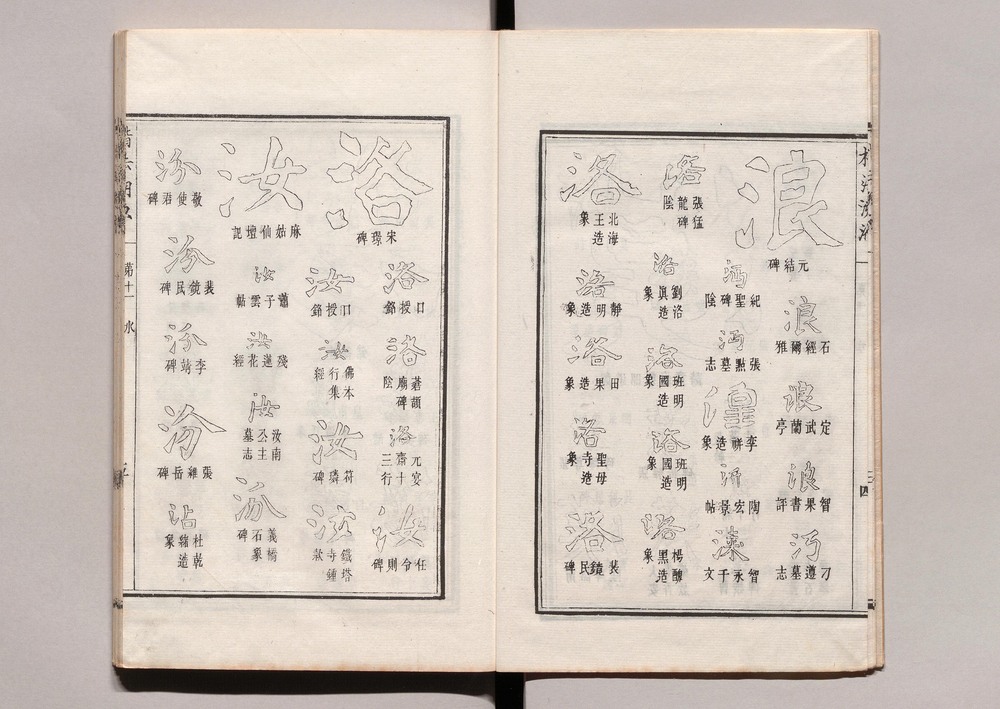 浪
元結碑
浪
石經爾雅
浪
定武蘭亭
浪
智果書評
沔
刁遵墓志
沔
紀聖碑陰
沔
張黙墓志
湟
李祥造象
汧
陶宏景帖
漆
智永千文
洛
張猛龍碑陰
洛
劉洛眞造象
洛
班明國造象
洛
班明國造象
洛
楊醜黑造象
洛
北海王造象
洛
靜明造象
洛
田果造象
洛
聖母寺造象
洛
裴鏡民碑
洛
宋璟碑
洛
口授銘
洛
蒼頡廟碑陰
洛
元宴齋十三行
汝
任令則碑
汝
口授銘
汝
佛本行集經
汝
符璘碑
汝
鐵塔寺鍾款
汝
麻姑仙壇記
汝
蕭子雲帖
汝
殘蓮花經
汝
汝南公主墓志
汾
義橋石象碑
汾
敬使君碑
汾
裴鏡民碑
汾
李靖碑
汾
張維岳碑
沾
杜乾緒造象
第十一 水